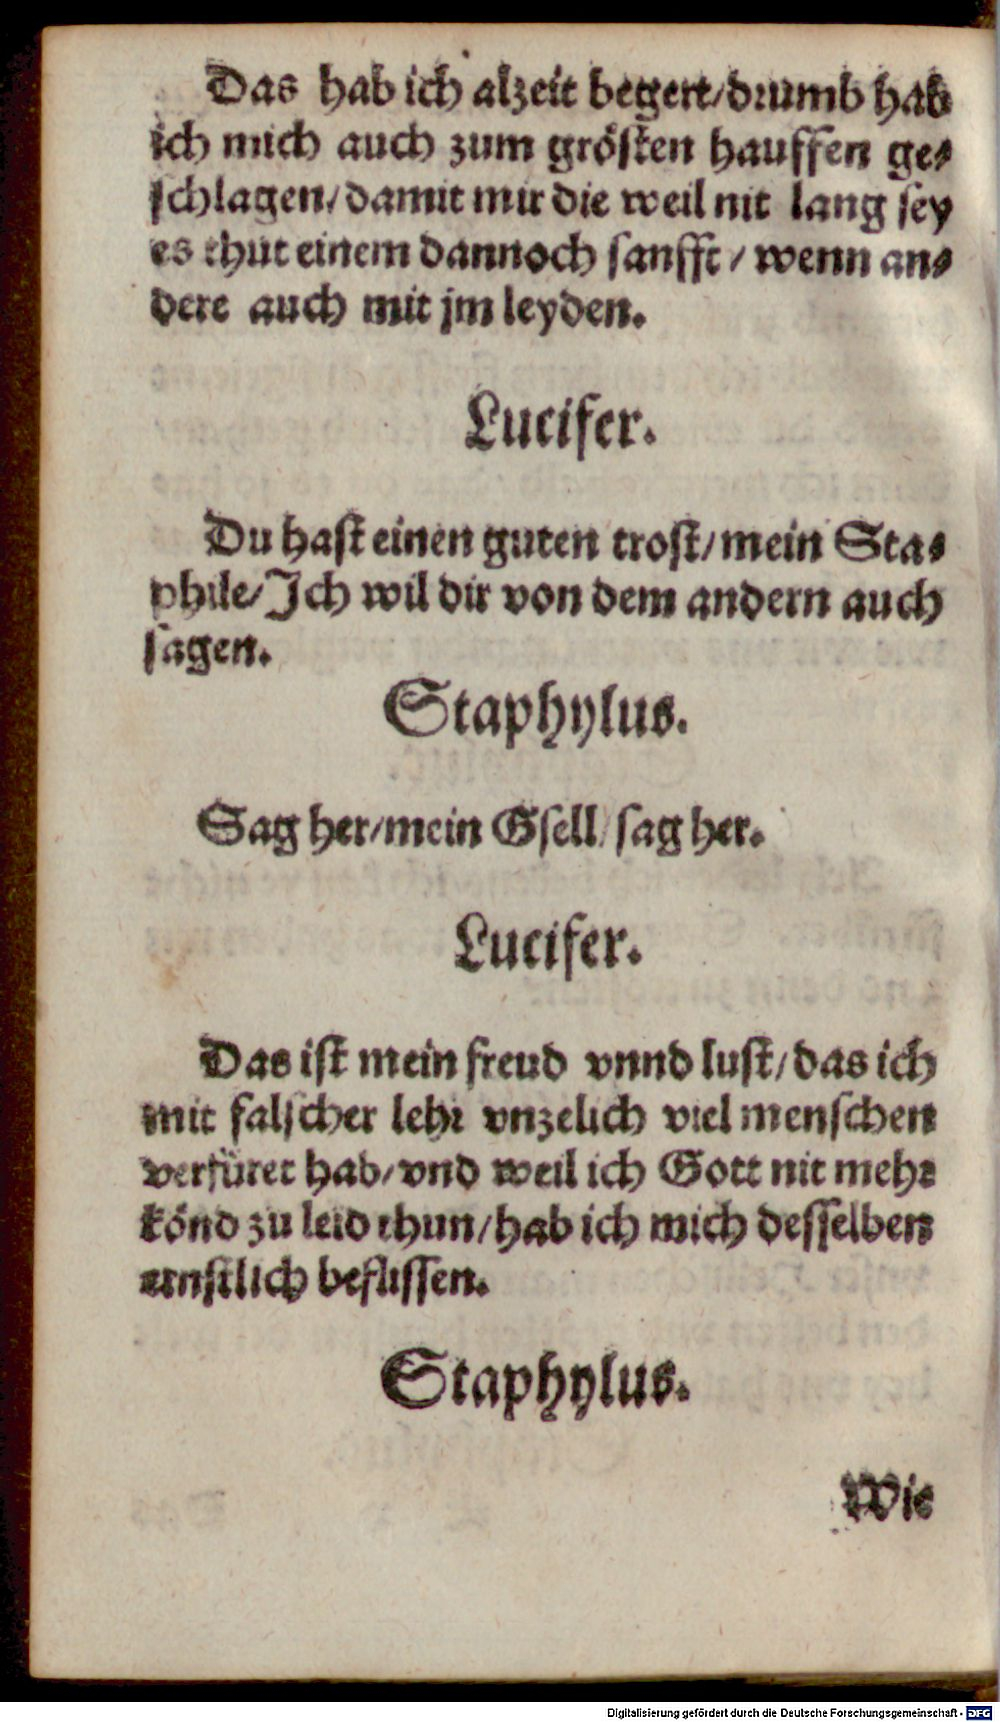 Das hab ich alzeit begert/drumb hab
ich mich auch zum grösten hauffen ge-
schlagen/damit mir die weil nit lang sey
es thut einem dannoch sanfft/wenn an-
dere auch mit jm leyden.
Lucifer.
Du hast einen guten trost/mein Sta-
phile/Ich wil dir von dem andern auch
sagen.
Staphylus.
Sag her/mein Gsell/sag her.
Lucifer.
Das ist mein freud vnnd lust/das ich
mit falscher lehr vnzelich viel menschen
verfüret hab/vnd weil ich Gott nit mehr
könd zu leid thun/hab ich mich desselben
ernstlich beflissen.
Staphylus.
Wie
Digitalisierung gefördert durch die Deutsche Forschungsgemeinschaft - DFG